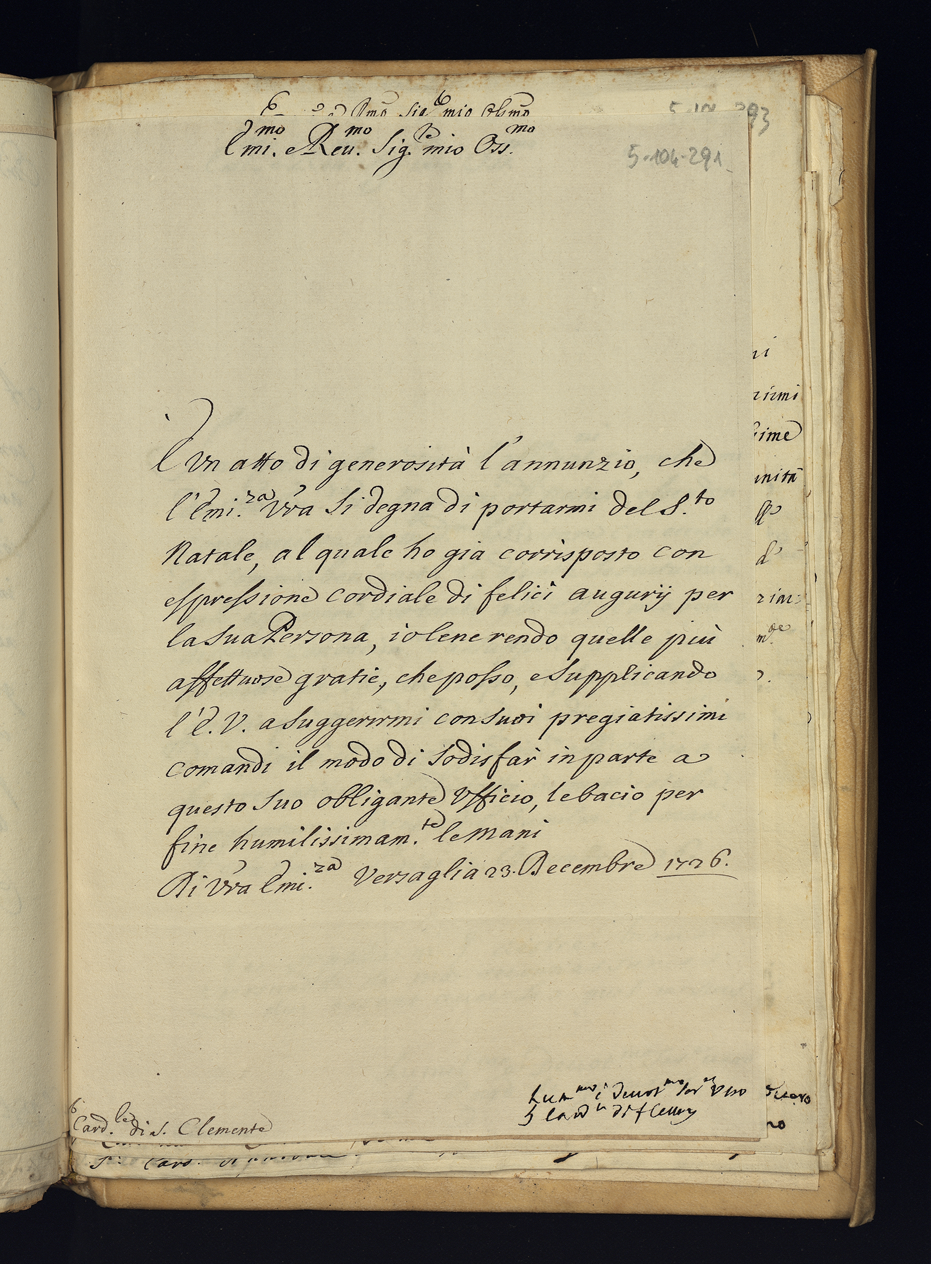 Emi.mo e Reu.mo Sig.re mio Oss.mo
5-104-291
È Vn atto di generosità l'annunzio, che
l'Emi.za Vra si degna di portarmi del S.to
Natale, al quale ho gia corrisposto con
espressione cordiale di felici augurij per
la sua Persona, io le ne rendo quelle più
affettuose gratie, che posso, e supplicando
l'E. V. a suggerirmi con suoi pregiatissimi
comandi il modo di sodisfar in parte a
questo suo obligante Vfficio, le bacio per
fine humilissimam.te le mani
Di Vra Emi.za Versaglia 23. Decembre 1726.
Hum.mo e Deuot.mo Ser.re Vro
Il Card.le di fleury
Card.le di S. Clemente